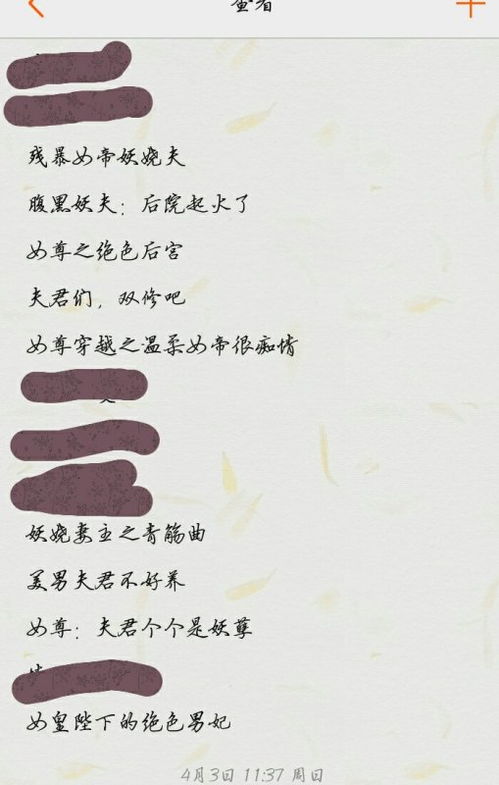 查看
残暴女帝妖娆夫
腹黑妖夫：后院起火了
女尊之绝色后宫
夫君们，双修吧
女尊穿越之温柔女帝很痴情
妖娆妻主之青筋曲
美男夫君不好养
女尊：夫君个个是妖孽
女皇陛下的绝色男妃
4月3日 11:37 周日